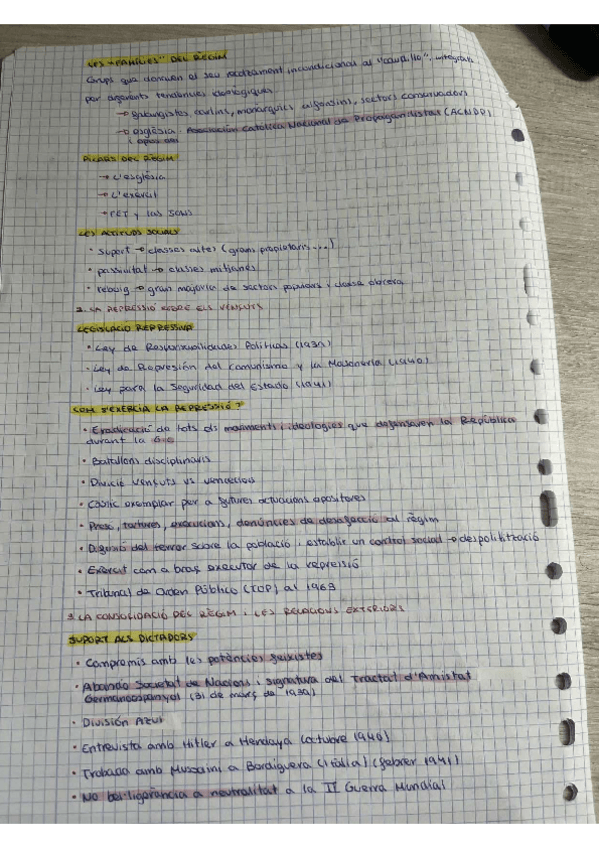 LES "FAMÍLIES" DEL RÈGIM
Grups que donaven el seu recolzament incondicional al "caudillo", integrats
per diferents tendències ideològiques
→ falangistes, carlins, monàrquics alfonsins, sectors conservadors
→ església. Asociación Católica Nacional de Propagandistas (ACNDP)
i opus dei
PILARS DEL RÈGIM
→ L'església
→ L'exèrcit
→ FET y las JONS
LES ACTITUDS SOCIALS
• suport → classes altes (grans propietaris...)
• passivitat → classes mitjanes
• rebuig → gran majoria de sectors populars i classe obrera
2. LA REPRESSIÓ SOBRE ELS VENÇUTS
LEGISLACIÓ REPRESSIVA
• Ley de Responsabilidades Políticas (1939)
• Ley de Represión del Comunismo y la Masonería (1940)
• Ley para la Seguridad del Estado (1941)
COM S'EXERCIA LA REPRESSIÓ?
• Eradicació de tots els moviments i ideologies que defensaven la República
durant la GC
• Batallons disciplinaris
• Divisió vençuts vs vencedors
• Càstic exemplar per a futures actuacions opositores
• Presó, tortures, execucions, denúncies de desafecció al règim
• Difusió del terror sobre la població i establir un control social → despolitització
• Exèrcit com a braç executor de la repressió
• Tribunal de Orden Público (TOP) al 1963
3. LA CONSOLIDACIÓ DEL RÈGIM I LES RELACIONS EXTERIORS
SUPORT ALS DICTADORS
• Compromís amb les potències feixistes
• Abandó Societat de Nacions i signatura del Tractat d'Amistat
Germanoespanyol (31 de març de 1939)
• División Azul
• Entrevista amb Hitler a Hendaya (octubre 1940)
• Trobada amb Mussolini a Bordighera (Itàlia) (febrer 1941)
• No bel·ligerància a neutralitat a la II Guerra Mundial